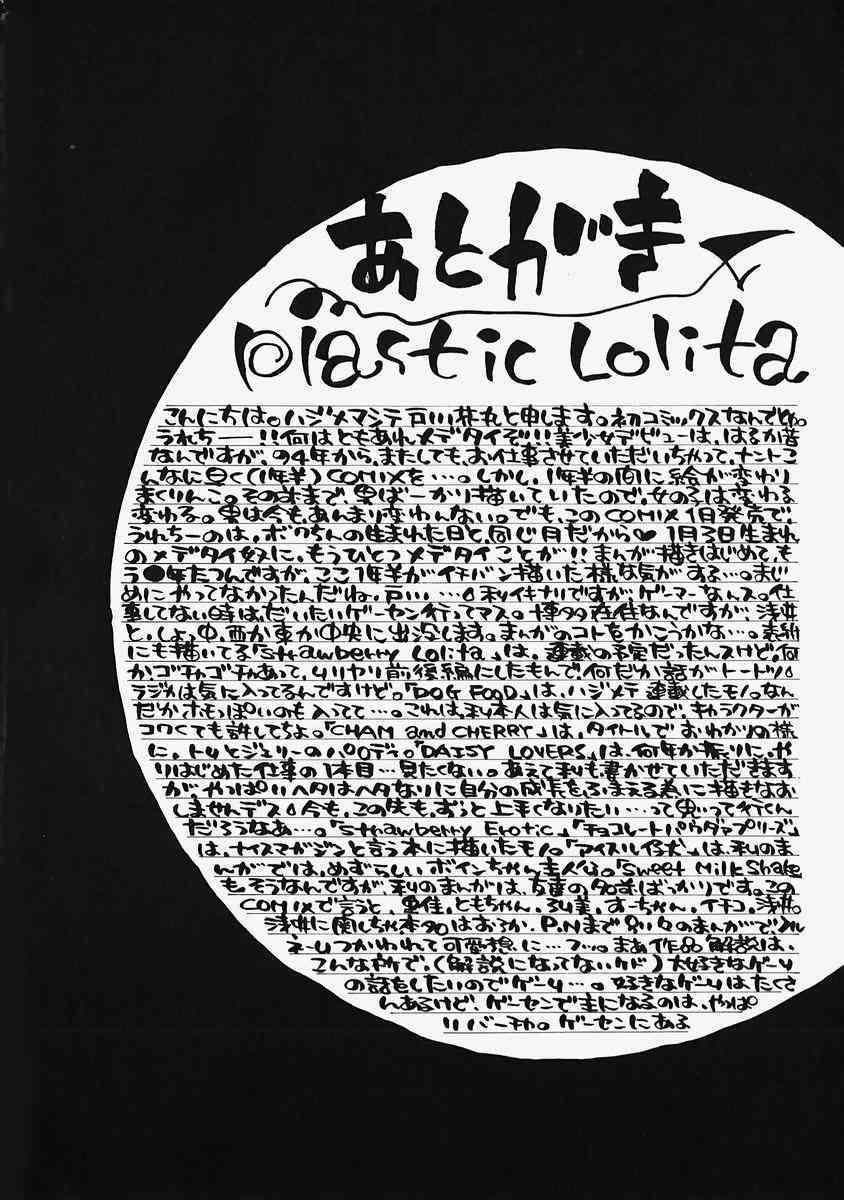 あとがき
Plastic Lolita
こんにちは。ハジメマシテ戸川 と申します。初コミックスなんでしゅ。
うれちー──!!何はともあれメデタイぞ!!美少女デビューは、はるか昔
なんですが、94年から、またしても、お仕事させていただいちゃって、ナントこ
んなに早く(1年半)COMIXを…。しかし、1年半の間に絵が変わり
まくりんこ。その 、男ばーかり描いていたので、女の子は変わる
変わる。男は今も、あんまり変わんない。でも、このCOMIX1月発売で、
うれちーのは、ボクちんの生まれた日と、同じ月だから♥1月3日生まれ
のメデタイ奴に、もうひとつメデタイことが!!まんが描きはじめて、も
う●年たつんですが、ここ1年半がイチバン描いた様な気がする…。まじ
めにやってなかったんだね、戸川…。私イキナリですがゲーマーなんス。仕
事してない時は、だいたいゲーセン行ってマス。博多在住なんですが、浅井
と、しょっ中、西か東か中央に出没します。まんがのコトをかこうかな…。表紙
にも描いてる「Strawberry Lolita」は、連載の予定だったんスけど、何
か、ゴチャゴチャあって、ムリヤリ前後編にしたもんで、何だか話がトートツ。
ラジカは気に入ってるんですけど。「DOG FOOD」は、ハジメテ連載したモノ。なん
だかホモっぽいのも入ってて…。これは、私本人は気に入ってるので、キャラクターが
コワくても許してちょ。「CHAM and CHERRY」は、タイトルでおわかりの様
に、トムとジェリーのパロディ。「DAISY LOVERS」は、何年か振りに、や
りはじめた仕事の1本目…見たくない。あえて私も書かせていただきます
が、やっぱ、ヘタはヘタなりに自分の成長をふまえる為に描きなお
しませんデス。今も、この先も、ずっと上手くなりたい…って思って行くん
だろうなあ…。「Strawberry Erotic」「チョコレートパウダァプリーズ」
は、ナイスマガジンと言う本に描いたモノ。「アイスル仔犬」は、私のま
んがでは、めずらしいボインちゃん主人公。「Sweet Milk Shake」
もそうなんですが、私のまんがは、友達の名前ばっかりです。この
COMIXで言うと、 、ともちゃん、 、すーちゃん、イチコ、浅井。
浅井に関しちゃ本名はおろか、P.Nまで別々のまんがで、2ル
ネームつかわれて可愛想に…フッ。まあ作品解説は、
こんな所で、(解説になってないケド)大好きなゲーム
の話をしたいのでゲーム…。好きなゲームは、たくさ
んあるけど、ゲーセンで主になるのは、やっぱ
リバーチャ。ゲーセンにある